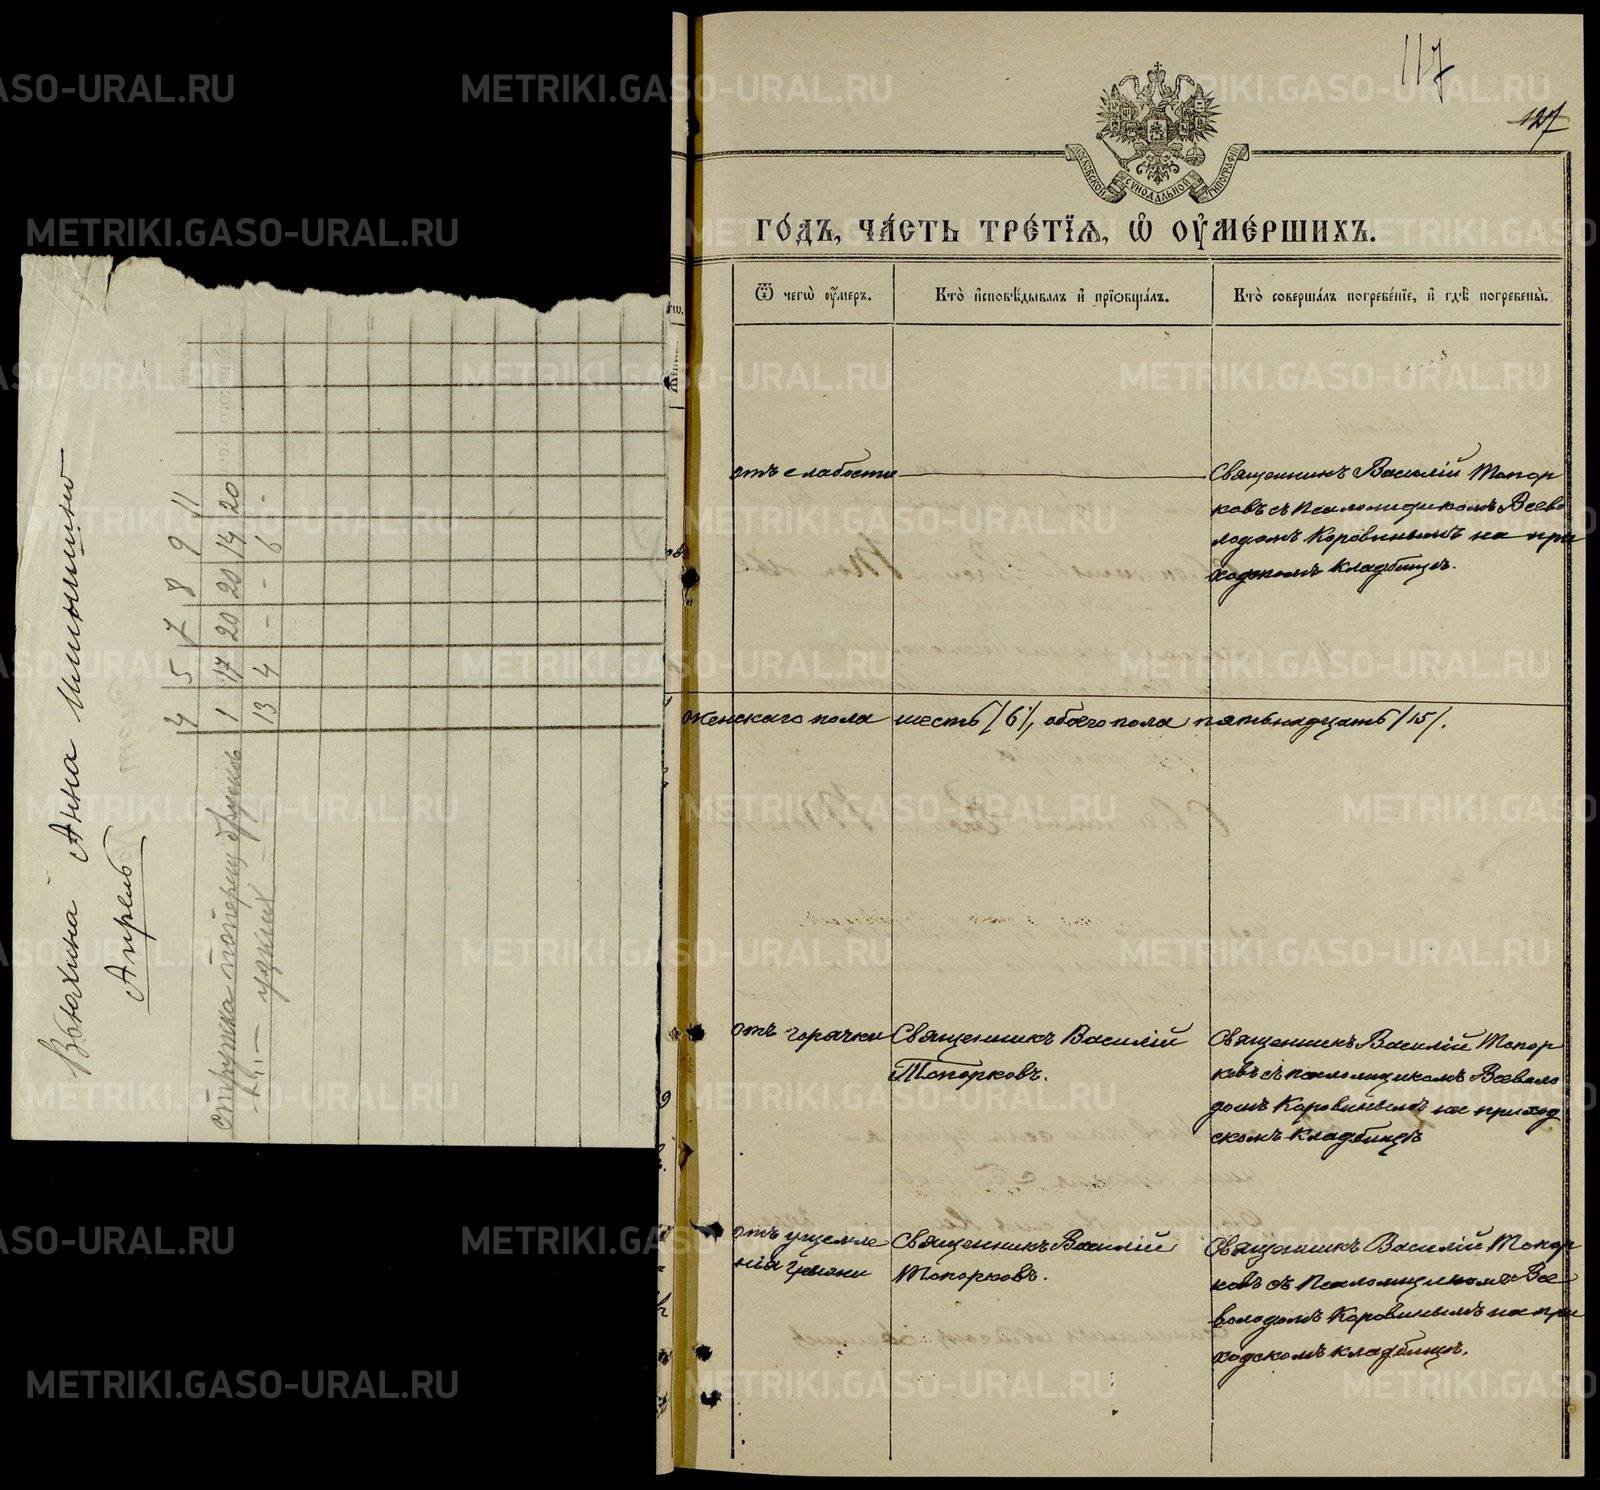 117
127
МОСКОВСКОЙ СѴНОДАЛЬНОЙ ТИПОГРАФІИ
ГО́ДЪ, ЧА́СТЬ ТРЕ́ТЇѦ, Ѽ ОУ҆МЕ́РШИХЪ.
Ѿ чегѡ̀ оу҆́меръ.
Кто̀ и҆сповѣ́дывалъ и҆ прїѻбща́лъ.
Кто̀ соверша́лъ погребе́нїе, и҆ гдѣ̀ погребены̀.
отъ слабости
Священникъ Василій Топор
ковъ съ Псаломщикомъ Всево
лодомъ Коровинымъ на при
ходскомъ кладбищѣ.
женскаго пола шесть /6/, обоего пола пятьнадцать /15/.
отъ горячки
Священникъ Василій
Топорковъ.
Священникъ Василій Топор
ковъ съ псаломщикомъ Всеволо
домъ Коровинымъ на приход
скомъ кладбищѣ
отъ ущемле
нія грыжи
Священникъ Василій
Топорковъ.
Священникъ Василій Топор
ковъ съ Псаломщикомъ Все
володомъ Коровинымъ на при
ходскомъ кладбищѣ.
Анна
Апрель
4 5 7 8 9 11
1 17 20 20 14 20
13 4 - - 6 -
METRIKI.GASO-URAL.RU